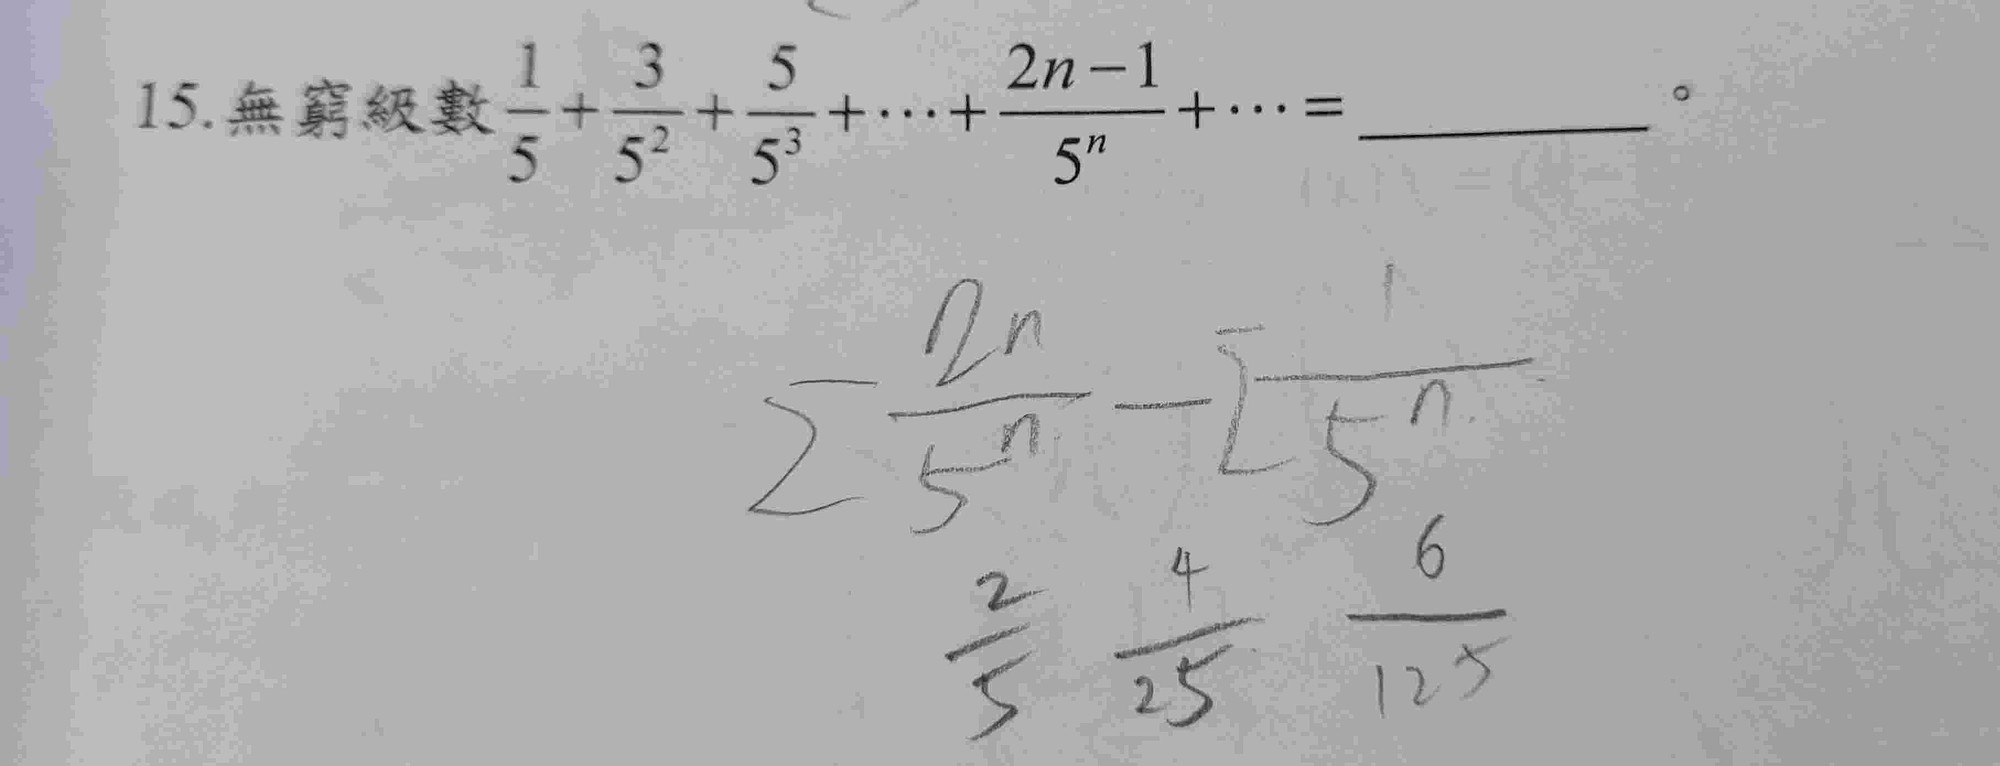 15.無窮級數 1/5 + 3/5² + 5/5³ + ⋯ + (2n−1)/5ⁿ + ⋯ = ________。
Σ 2n/5ⁿ − Σ 1/5ⁿ
2/5 4/25 6/125